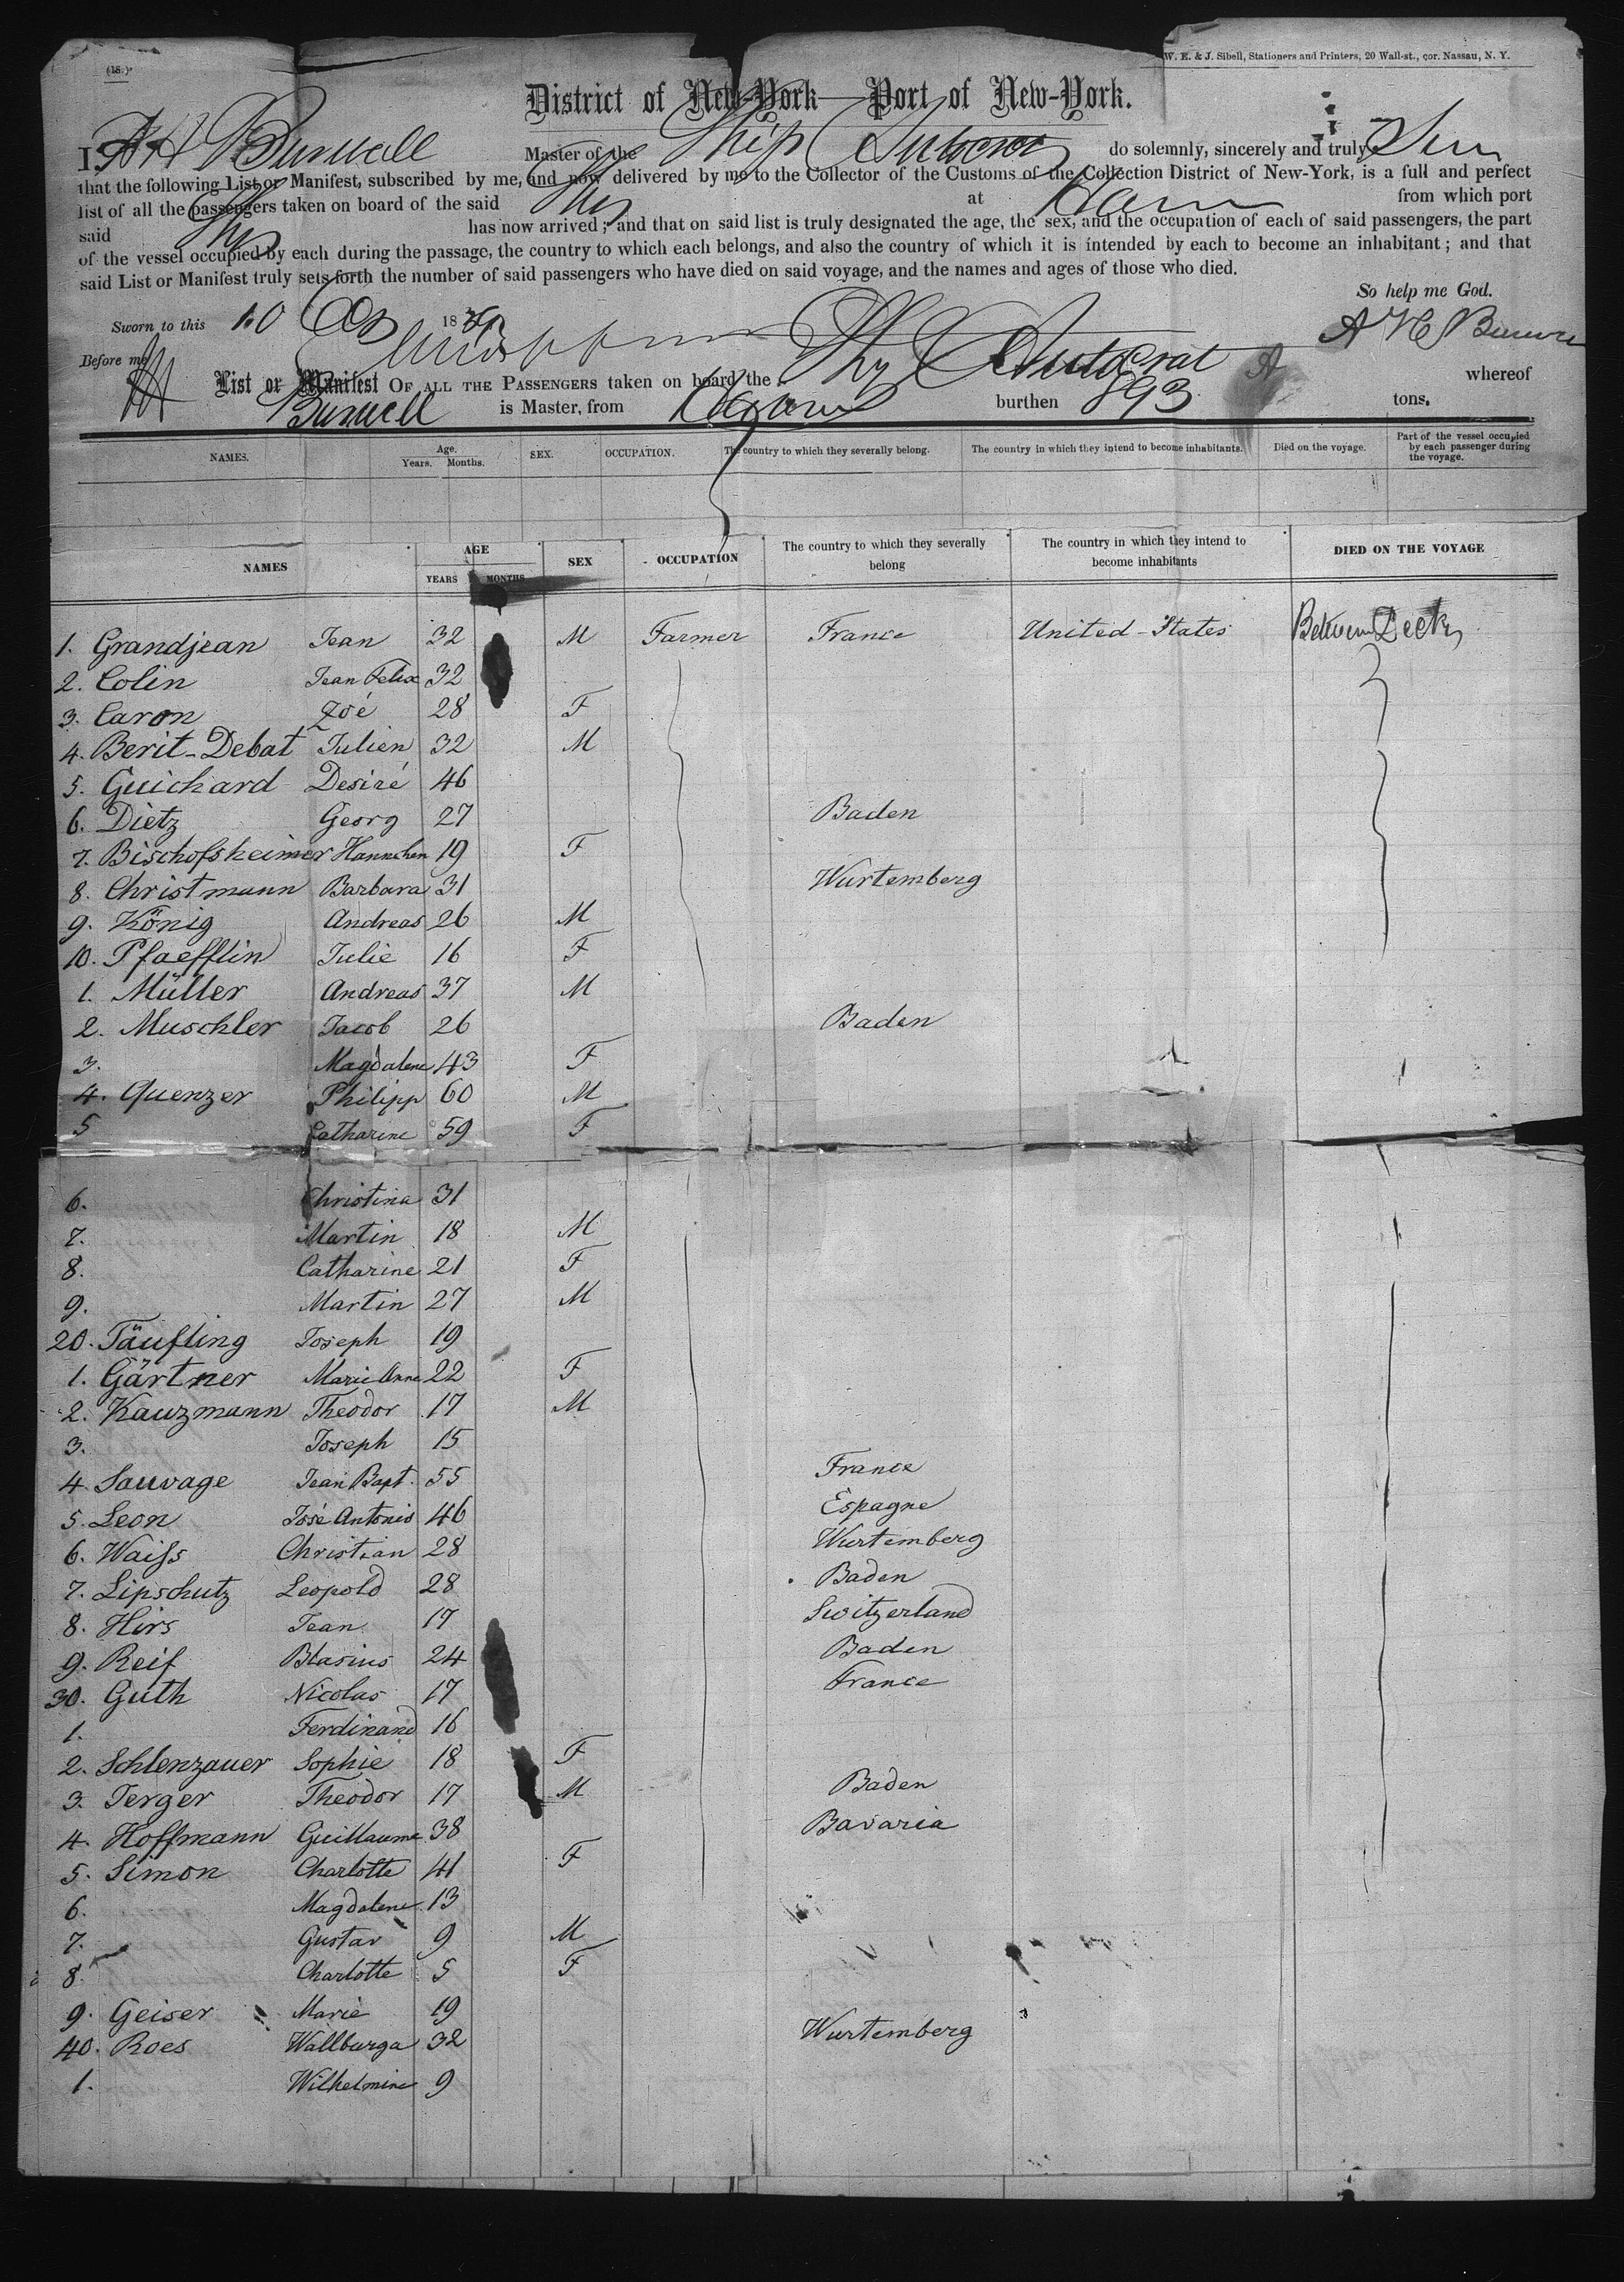 (18.)
W. E. & J. Sibell, Stationers and Printers, 20 Wall-st., cor. Nassau, N. Y.
District of New-York—Port of New-York.
I, A H Burwell Master of the Ship Autocrat do solemnly, sincerely and truly
that the following List or Manifest, subscribed by me, and now delivered by me to the Collector of the Customs of the Collection District of New-York, is a full and perfect
list of all the passengers taken on board of the said Ship at from which port
said Ship has now arrived; and that on said list is truly designated the age, the sex, and the occupation of each of said passengers, the part
of the vessel occupied by each during the passage, the country to which each belongs, and also the country of which it is intended by each to become an inhabitant; and that
said List or Manifest truly sets forth the number of said passengers who have died on said voyage, and the names and ages of those who died.
So help me God.
Sworn to this 10 18
A H Burwell
Before me
List or Manifest OF ALL THE PASSENGERS taken on board the Ship Autocrat A whereof
Burwell is Master, from burthen 893 tons.
NAMES. Age. Years. Months. SEX. OCCUPATION. The country to which they severally belong. The country in which they intend to become inhabitants. Died on the voyage. Part of the vessel occupied by each passenger during the voyage.
NAMES AGE YEARS MONTHS SEX OCCUPATION The country to which they severally belong The country in which they intend to become inhabitants DIED ON THE VOYAGE
1. Grandjean Jean 32 M Farmer France United-States Between Decks
2. Colin Jean Felix 32
3. Caron Zoé 28 F
4. Berit-Debat Julien 32 M
5. Guichard Desiré 46
6. Dietz Georg 27 Baden
7. Bischofsheimer Hannchen 19 F
8. Christmann Barbara 31 Wurtemberg
9. König Andreas 26 M
10. Pfaefflin Julie 16 F
1. Müller Andreas 37 M
2. Muschler Jacob 26 Baden
3. Magdalene 43 F
4. Quenzer Philipp 60 M
5 Catharine 59 F
6. Christina 31
7. Martin 18 M
8. Catharine 21 F
9. Martin 27 M
20. Täufling Joseph 19
1. Gärtner Marie Anne 22 F
2. Kauzmann Theodor 17 M
3. Joseph 15
4. Sauvage Jean Bapt. 55 France
5. Leon José Antonio 46 Espagne
6. Waiss Christian 28 Wurtemberg
7. Lipschutz Leopold 28 Baden
8. Hirs Jean 17 Switzerland
9. Reif Blasius 24 Baden
30. Guth Nicolas 17 France
1. Ferdinand 16
2. Schlenzauer Sophie 18 F
3. Jerger Theodor 17 M Baden
4. Hoffmann Guillaume 38 Bavaria
5. Simon Charlotte 41 F
6. Magdalene 13
7. Gustav 9 M
8. Charlotte 5 F
9. Geiser Marie 19
40. Roes Wallburga 32 Wurtemberg
1. Wilhelmine 9